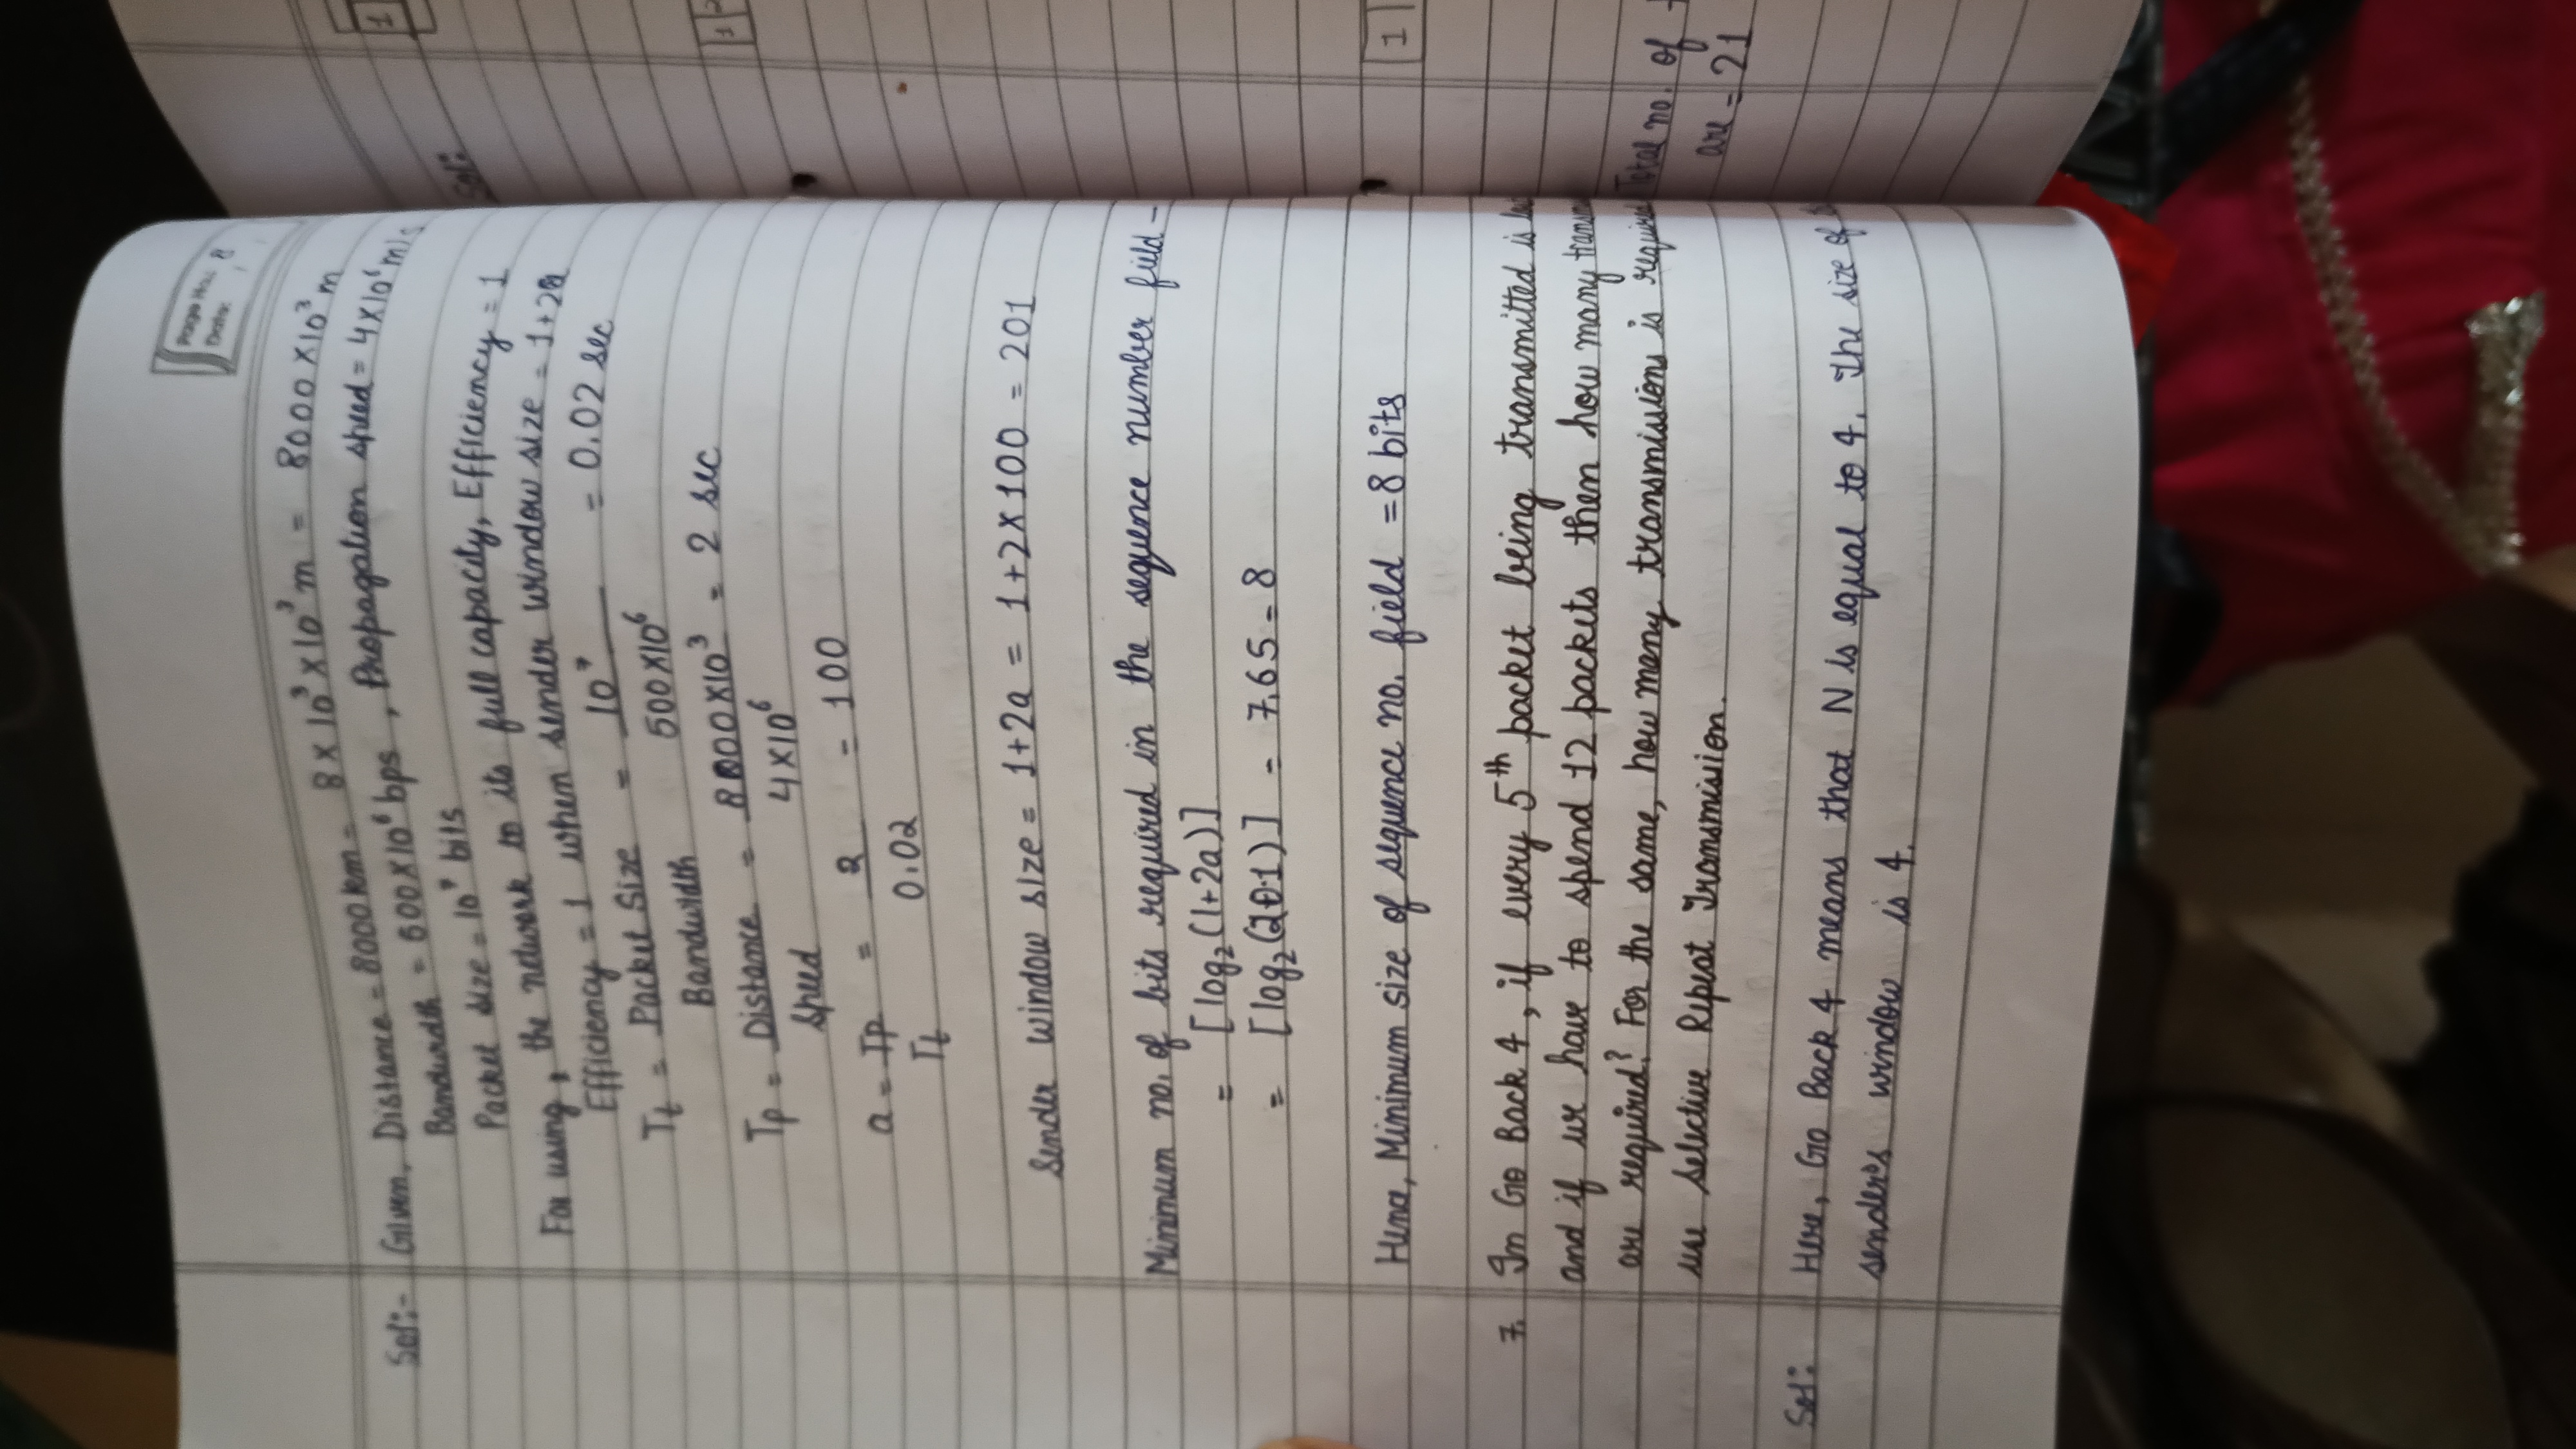 Page No.: 8
Date:
Sol:- Given, Distance = 8000 km = 8 × 10³ × 10³ m = 8000 × 10³ m
Bandwidth = 500 × 10⁶ bps, Propagation speed = 4 × 10⁶ m/s
Packet size = 10⁷ bits
For using, the network to its full capacity, Efficiency = 1
Efficiency = 1 when sender window size = 1+2a
Tt = Packet Size / Bandwidth = 10⁷ / 500×10⁶ = 0.02 sec
Tp = Distance / Speed = 8000×10³ / 4×10⁶ = 2 sec
a = Tp / Tt = 2 / 0.02 = 100
Sender window size = 1+2a = 1+2×100 = 201
Minimum no. of bits required in the sequence number field -
= [log₂(1+2a)]
= [log₂(201)] = 7.65 = 8
Hence, Minimum size of sequence no. field = 8 bits
7. In Go Back 4, if every 5th packet being transmitted is
and if we have to spend 12 packets then how many
are required? For the same, how many transmissions is required
use Selective Repeat Transmission.
Sol: Here, Go Back 4 means that N is equal to 4. The size of
sender's window is 4.
1
Sol:
1
1
Total no. of
are = 21